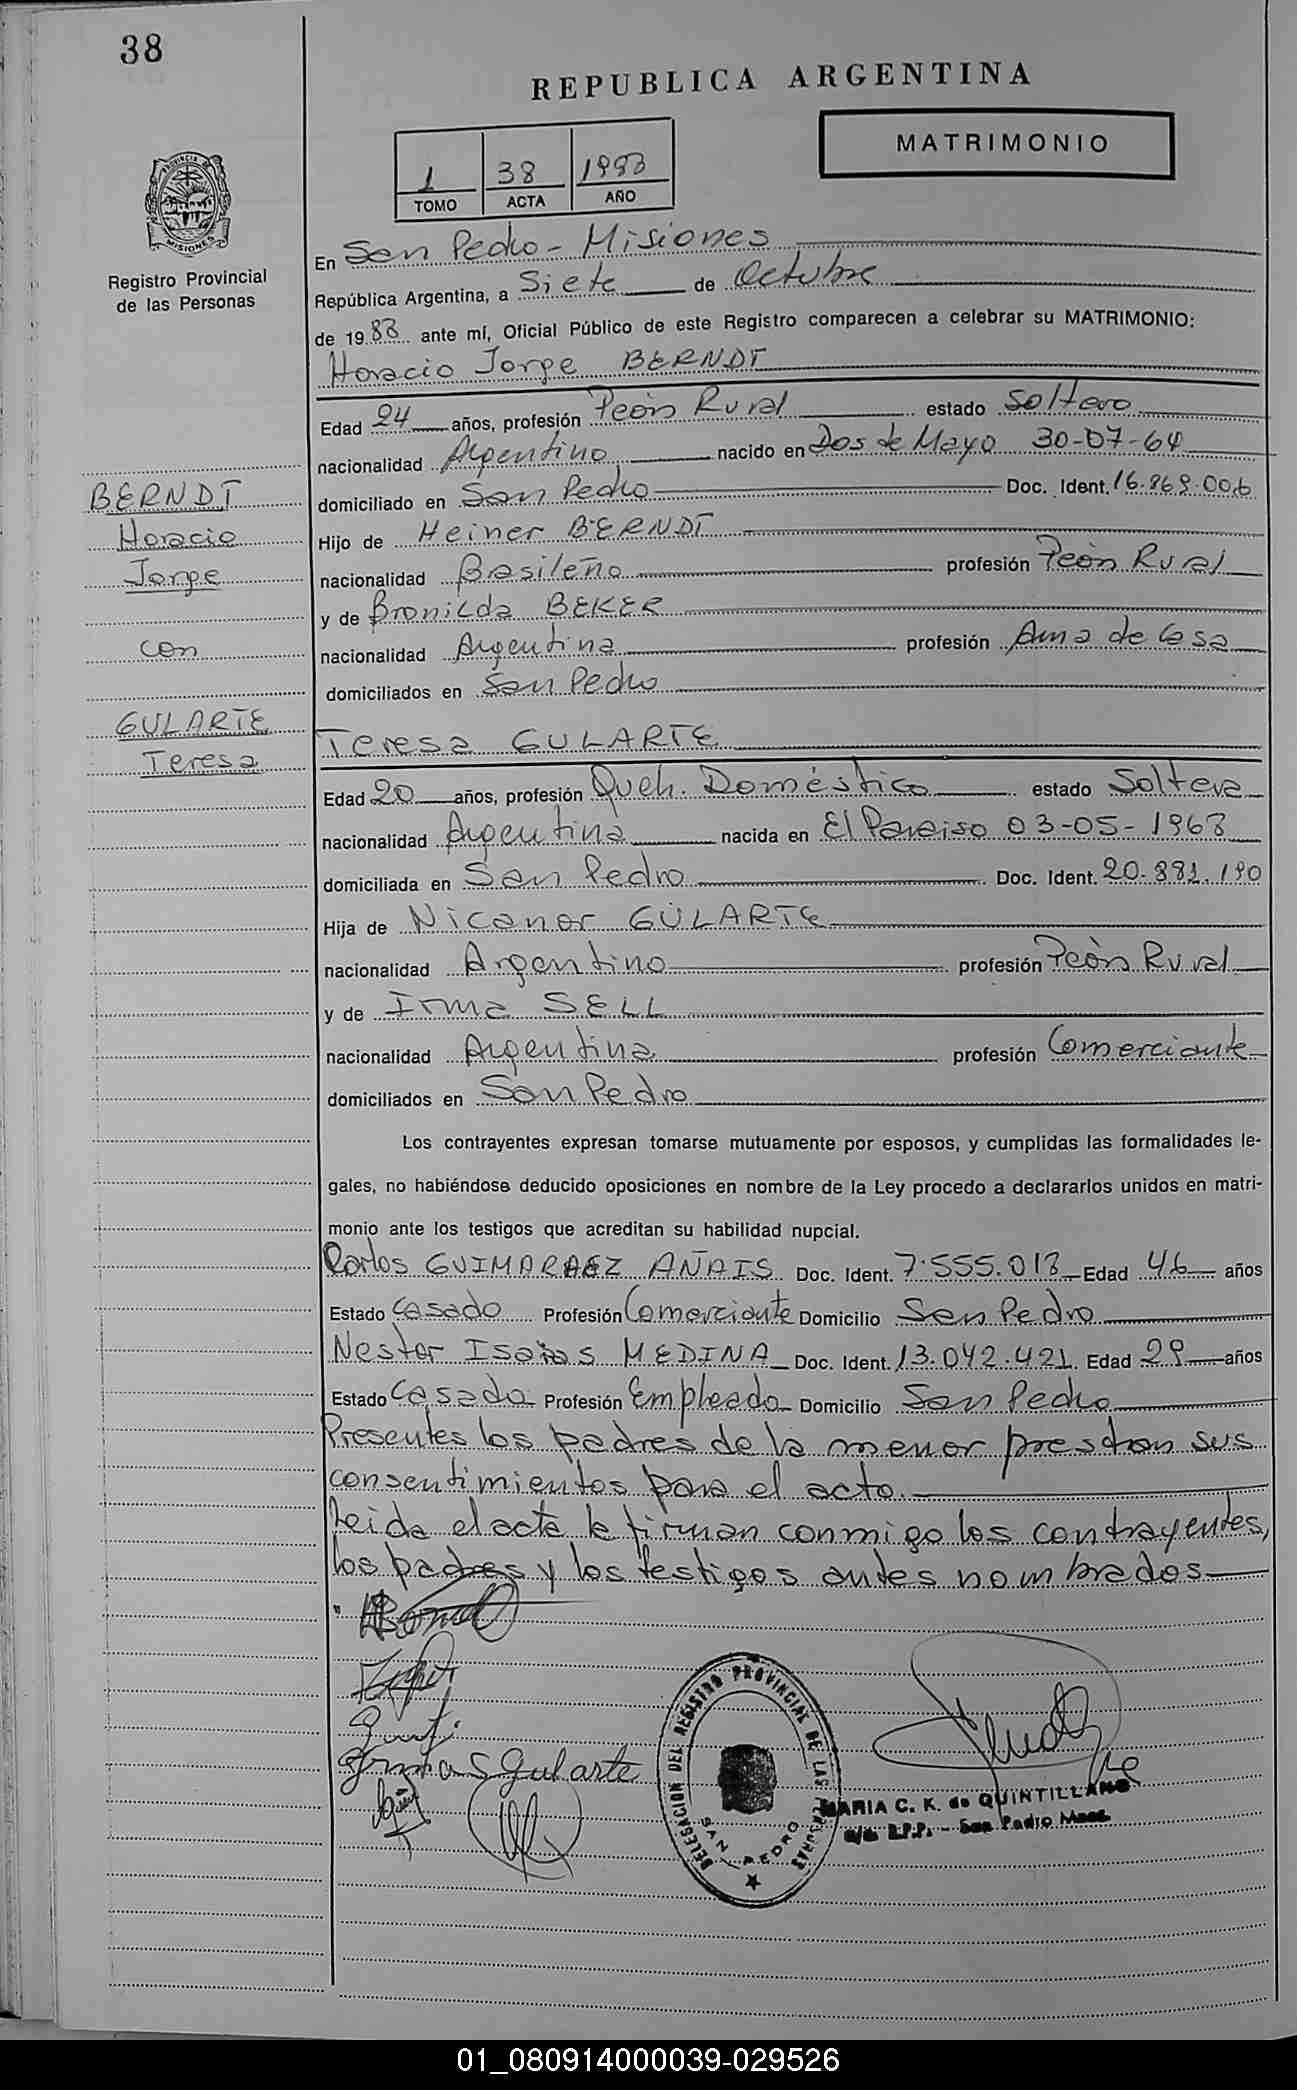 38
REPUBLICA ARGENTINA
MATRIMONIO
1 38 1988
TOMO ACTA AÑO
PROVINCIA DE MISIONES
Registro Provincial
de las Personas
En San Pedro - Misiones
República Argentina, a Siete de Octubre
de 1988 ante mí, Oficial Público de este Registro comparecen a celebrar su MATRIMONIO:
Horacio Jorge BERNDT
Edad 24 años, profesión Peón Rural estado Soltero
nacionalidad Argentino nacido en Dos de Mayo 30-07-64
BERNDT
Horacio
Jorge
con
GULARTE
Teresa
domiciliado en San Pedro Doc. Ident. 16.869.006
Hijo de Heiner BERNDT
nacionalidad Brasileño profesión Peón Rural
y de Bronilda BEKER
nacionalidad Argentina profesión Ama de Casa
domiciliados en San Pedro
Teresa GULARTE
Edad 20 años, profesión Queh. Doméstico estado Soltera
nacionalidad Argentina nacida en El Paraiso 03-05-1968
domiciliada en San Pedro Doc. Ident. 20.881.190
Hija de Nicanor GULARTE
nacionalidad Argentino profesión Peón Rural
y de Irma SELL
nacionalidad Argentina profesión Comerciante
domiciliados en San Pedro
Los contrayentes expresan tomarse mutuamente por esposos, y cumplidas las formalidades le-
gales, no habiéndose deducido oposiciones en nombre de la Ley procedo a declararlos unidos en matri-
monio ante los testigos que acreditan su habilidad nupcial.
Carlos GUIMARAEZ AÑAIS Doc. Ident. 7.555.018 Edad 46 años
Estado Casado Profesión Comerciante Domicilio San Pedro
Nestor Isaias MEDINA Doc. Ident. 13.042.421 Edad 29 años
Estado Casado Profesión Empleado Domicilio San Pedro
Presentes los padres de la menor prestan sus
consentimientos para el acto.
Leida el acta la firman conmigo los contrayentes,
los padres y los testigos antes nombrados
Irma S Gularte
DELEGACION DEL REGISTRO PROVINCIAL DE LAS PERSONAS
SAN PEDRO
MARIA C. K. de QUINTILLANO
San Pedro Mnes.
01_080914000039-029526